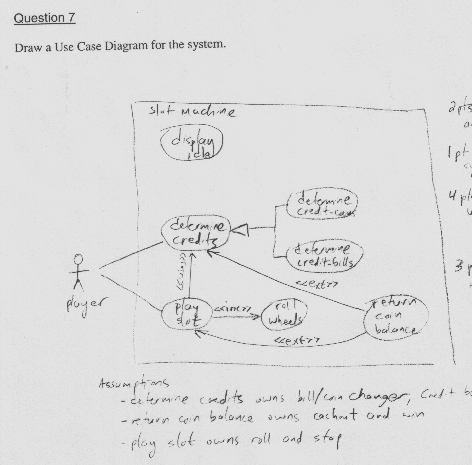 Question 7
Draw a Use Case Diagram for the system.
slot machine
2 pts
display
idle
1 pt
determine
credit-coin
4 pt
determine
credits
determine
credit-bills
<<inc>>
<<ext>>
3 p
player
play
slot
<<inc>>
roll
wheels
return
coin
balance
<<ext>>
Assumptions
- determine credits owns bill/coin changer, credit
- return coin balance owns cashout and win
- play slot owns roll and stop